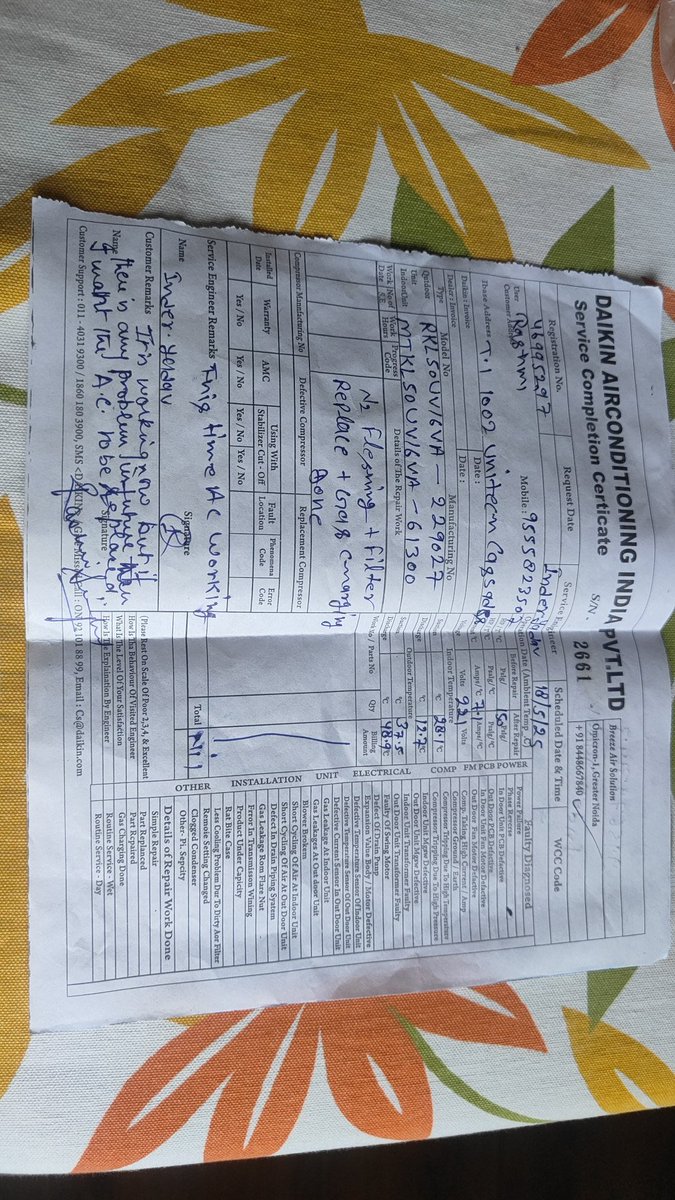 DAIKIN AIRCONDITIONING INDIA PVT.LTD
Service Completion Certicate
S/N.
2661
Breeze Air Solution
Omicron-1, Greater Noida
+91 8448667840
Registration No.
Request Date
Service Engineer
Scheduled Date & Time
WCC Code
Inder Yadav
18/5/25
User
Rashmi
Mobile : 9555823507
Customer Address
T-11 1002
Dealer : Invoice
Date :
Daikin : Invoice
Date :
Type
Model No
Manufacturing No
Outdoor
Unit
Indoor Unit
Work
Hours
Progress
Code
Details of The Repair Work
N2 Flessing + Filter
Replace + Gas
Done
Compressor Manufacturing No
Defective Compressor
Replacement Compressor
Installed
Date
Warranty
AMC
Using With
Stabilizer Cut - Off
Fault
Location
Phenomena
Code
Error
Code
Yes / No
Yes / No
Yes / No
Yes / No
Service Engineer Remarks
This time AC working
Name
Inder Yadav
Signature
Customer Remarks
It is working now but if
there is any problem in future then
I want the A.C. to be
Name
Signature
Before Repair
After Repair
150 Psig
7.1 Amps/°C
221 Volts
Indoor Temperature
28.1 °C
12.7 °C
Outdoor Temperature
37.5 °C
48.9 °C
Qty
Billing
Amount
Total
Nill
(Please Rest On Scale Of Poor 2,3,4, & Excellent
How Is tha Behaviour Of Visited Engineer
What Is The Level Of Your Satisfaction
How Is The Explaination By Engineer
Faulty Diagnosed
POWER
Power Failure
Phase Reverse
PCB
In Door Unit PCB Defective
Out Door PCB Defective
FM
In Door Unit Fan Motor Defective
Out Door Fan Motor Defective
COMP
Compressor Ground / Earth
Compressor Tripping Due To High Temperature
Compressor Tripping Due To High Pressure
ELECTRICAL
Indoor Unit Mgsw Defective
Out Door Unit Mgsw Defective
Out Door Unit Transformer Faulty
Faulty Of Swing Motor
Defect Of Drain Pump
Expansion Valve Body / Motor Defective
Defective Temperature Sensor Of Indoor Unit
Defective Temperature Sensor Of Out Door Unit
Defective Current Sensor In Out Door Unit
UNIT
Gas Leakage At Indoor Unit
Gas Leakages At Out door Unit
Blower Broken
Short Cycling Of Air At Indoor Unit
Short Cycling Of Air At Out Door Unit
INSTALLATION
Defect In Drain Piping System
Gas Leakage Room Flare Nut
Error In Transmisson Wining
Product Under Capicity
Rat Bite Case
OTHER
Less Cooling Problem Due To Dirty Aor Filter
Remote Setting Changed
Clogged Condenser
Other- Pl. Sepcity
Details of Repair Work Done
Simple Repair
Part Replanced
Part Repaired
Gas Charging Done
Routine Service - Wet
Routine Service - Day